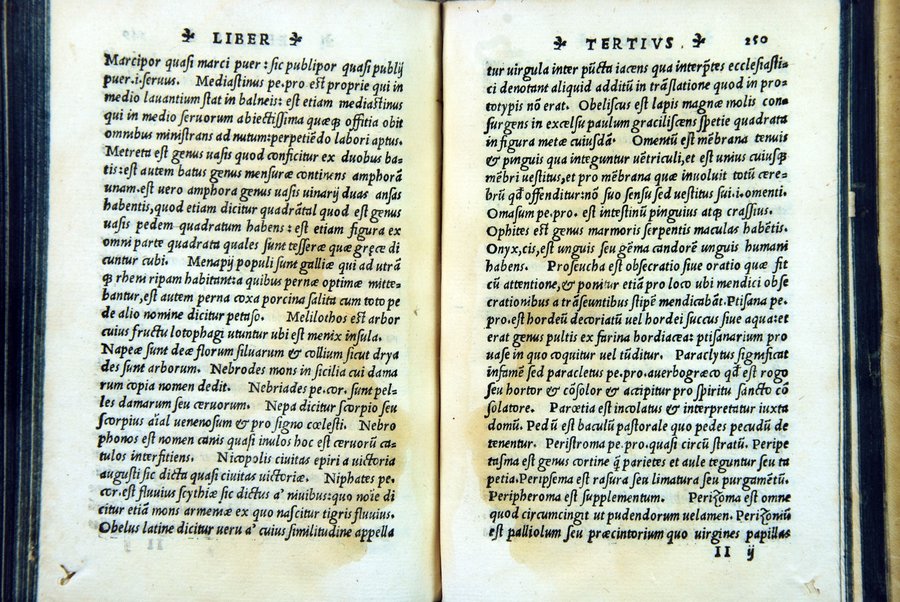 LIBER
Marcipor quasi marci puer: sic publipor quasi publij
puer.i.seruus. Mediastinus pe.pro est proprie qui in
medio lauantium stat in balneis: est etiam mediastinus
qui in medio seruorum abiectissima quæq offitia obit
omnibus ministrans ad nutum: perpetiēdo labori aptus.
Metreta est genus uasis quod conficitur ex duobus ba-
tis: est autem batus genus mensuræ continens amphorā
unam. est uero amphora genus uasis uinarij duas ansas
habentis, quod etiam dicitur quadrātal quod est genus
uasis pedem quadratum habens: est etiam figura ex
omni parte quadrata quales sunt tesseræ quæ gręce di
cuntur cubi. Menapij populi sunt galliæ qui ad utrā
q rheni ripam habitant: a quibus pernæ optimæ mitte-
bantur, est autem perna coxa porcina salita cum toto pe
de alio nomine dicitur petaso. Melilothos est arbor
cuius fructu lotophagi utuntur ubi est menix insula.
Napeæ sunt deæ florum siluarum & collium sicut drya
des sunt arborum. Nebrodes mons in sicilia cui dama
rum copia nomen dedit. Nebriades pe.cor. sunt pel-
les damarum seu ceruorum. Nepa dicitur scorpio seu
scorpius aīal uenenosum & pro signo cœlesti. Nebro
phonos est nomen canis quasi inulos hoc est ceruorū ca-
tulos interfitiens. Nicopolis ciuitas epiri a uictoria
augusti sic dicta quasi ciuitas uictoriæ. Niphates pe.
cor. est fluuius scythiæ sic dictus a' niuibus: quo noīe di
citur etiā mons armeniæ ex quo nascitur tigris fluuius.
Obelus latine dicitur ueru a' cuius similitudine appella
TERTIVS. 250
tur uirgula inter pūcta iacens qua interp̄tes ecclesiasti-
ci denotant aliquid additū in trāslatione quod in pro-
totypis nō erat. Obeliscus est lapis magnæ molis con-
surgens in excelsū paulum gracilisc̄es spetie quadrata
in figura metæ cuiusdā. Omentū est mēbrana tenuis
& pinguis qua integuntur uētriculi, et est unius cuiusq
mēbri uestitus, et pro mēbrana quæ inuoluit totū cere-
brū qd̄ offenditur: nō suo sensū sed uestitus sui.i.omenti.
Omasum pe.pro. est intestinū pinguius atq crassius.
Ophites est genus marmoris serpentis maculas habētis.
Onyx, cis, est unguis seu gēma candorē unguis humani
habens. Proseucha est obsecratio siue oratio quæ fit
cū attentione, & ponitur etiā pro loco ubi mendici obse
crationibus a trāseuntibus stipē mendicabāt. Ptisana pe.
pro. est hordeū decoriatū uel hordei succus siue aqua: et
erat genus pultis ex farina hordiacea: ptisanarium pro
uase in quo coquitur uel tūditur. Paraclytus significat
infamē sed paracletus pe.pro. auerbogræco qd̄ est rogo
seu hortor & cōsolor & accipitur pro spiritu sancto cō
solatore. Parœtia est incolatus & interpretatur iuxta
domū. Pedū est baculū pastorale quo pedes pecudū de
tenentur. Peristroma pe.pro. quasi circū stratū. Peripe
tasma est genus cortinæ q̄ parietes et aule teguntur seu ta
petia. Peripsema est rasura seu limatura seu purgamētū.
Peripheroma est supplementum. Perizoma est omne
quod circumcingit ut pudendorum uelamen. Perizomū
est palliolum seu præcintorium quo uirgines papillas
II ij